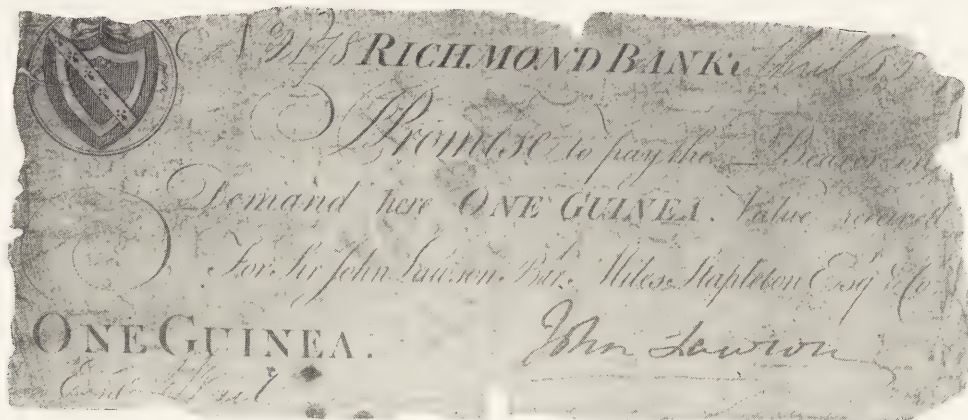 N 2178 RICHMOND BANK
I Promise to pay the Bearer on
Demand here ONE GUINEA. Value received
For Sir John Lawson Bar. Miles Stapleton Esq & Co
ONE GUINEA. John Lawson